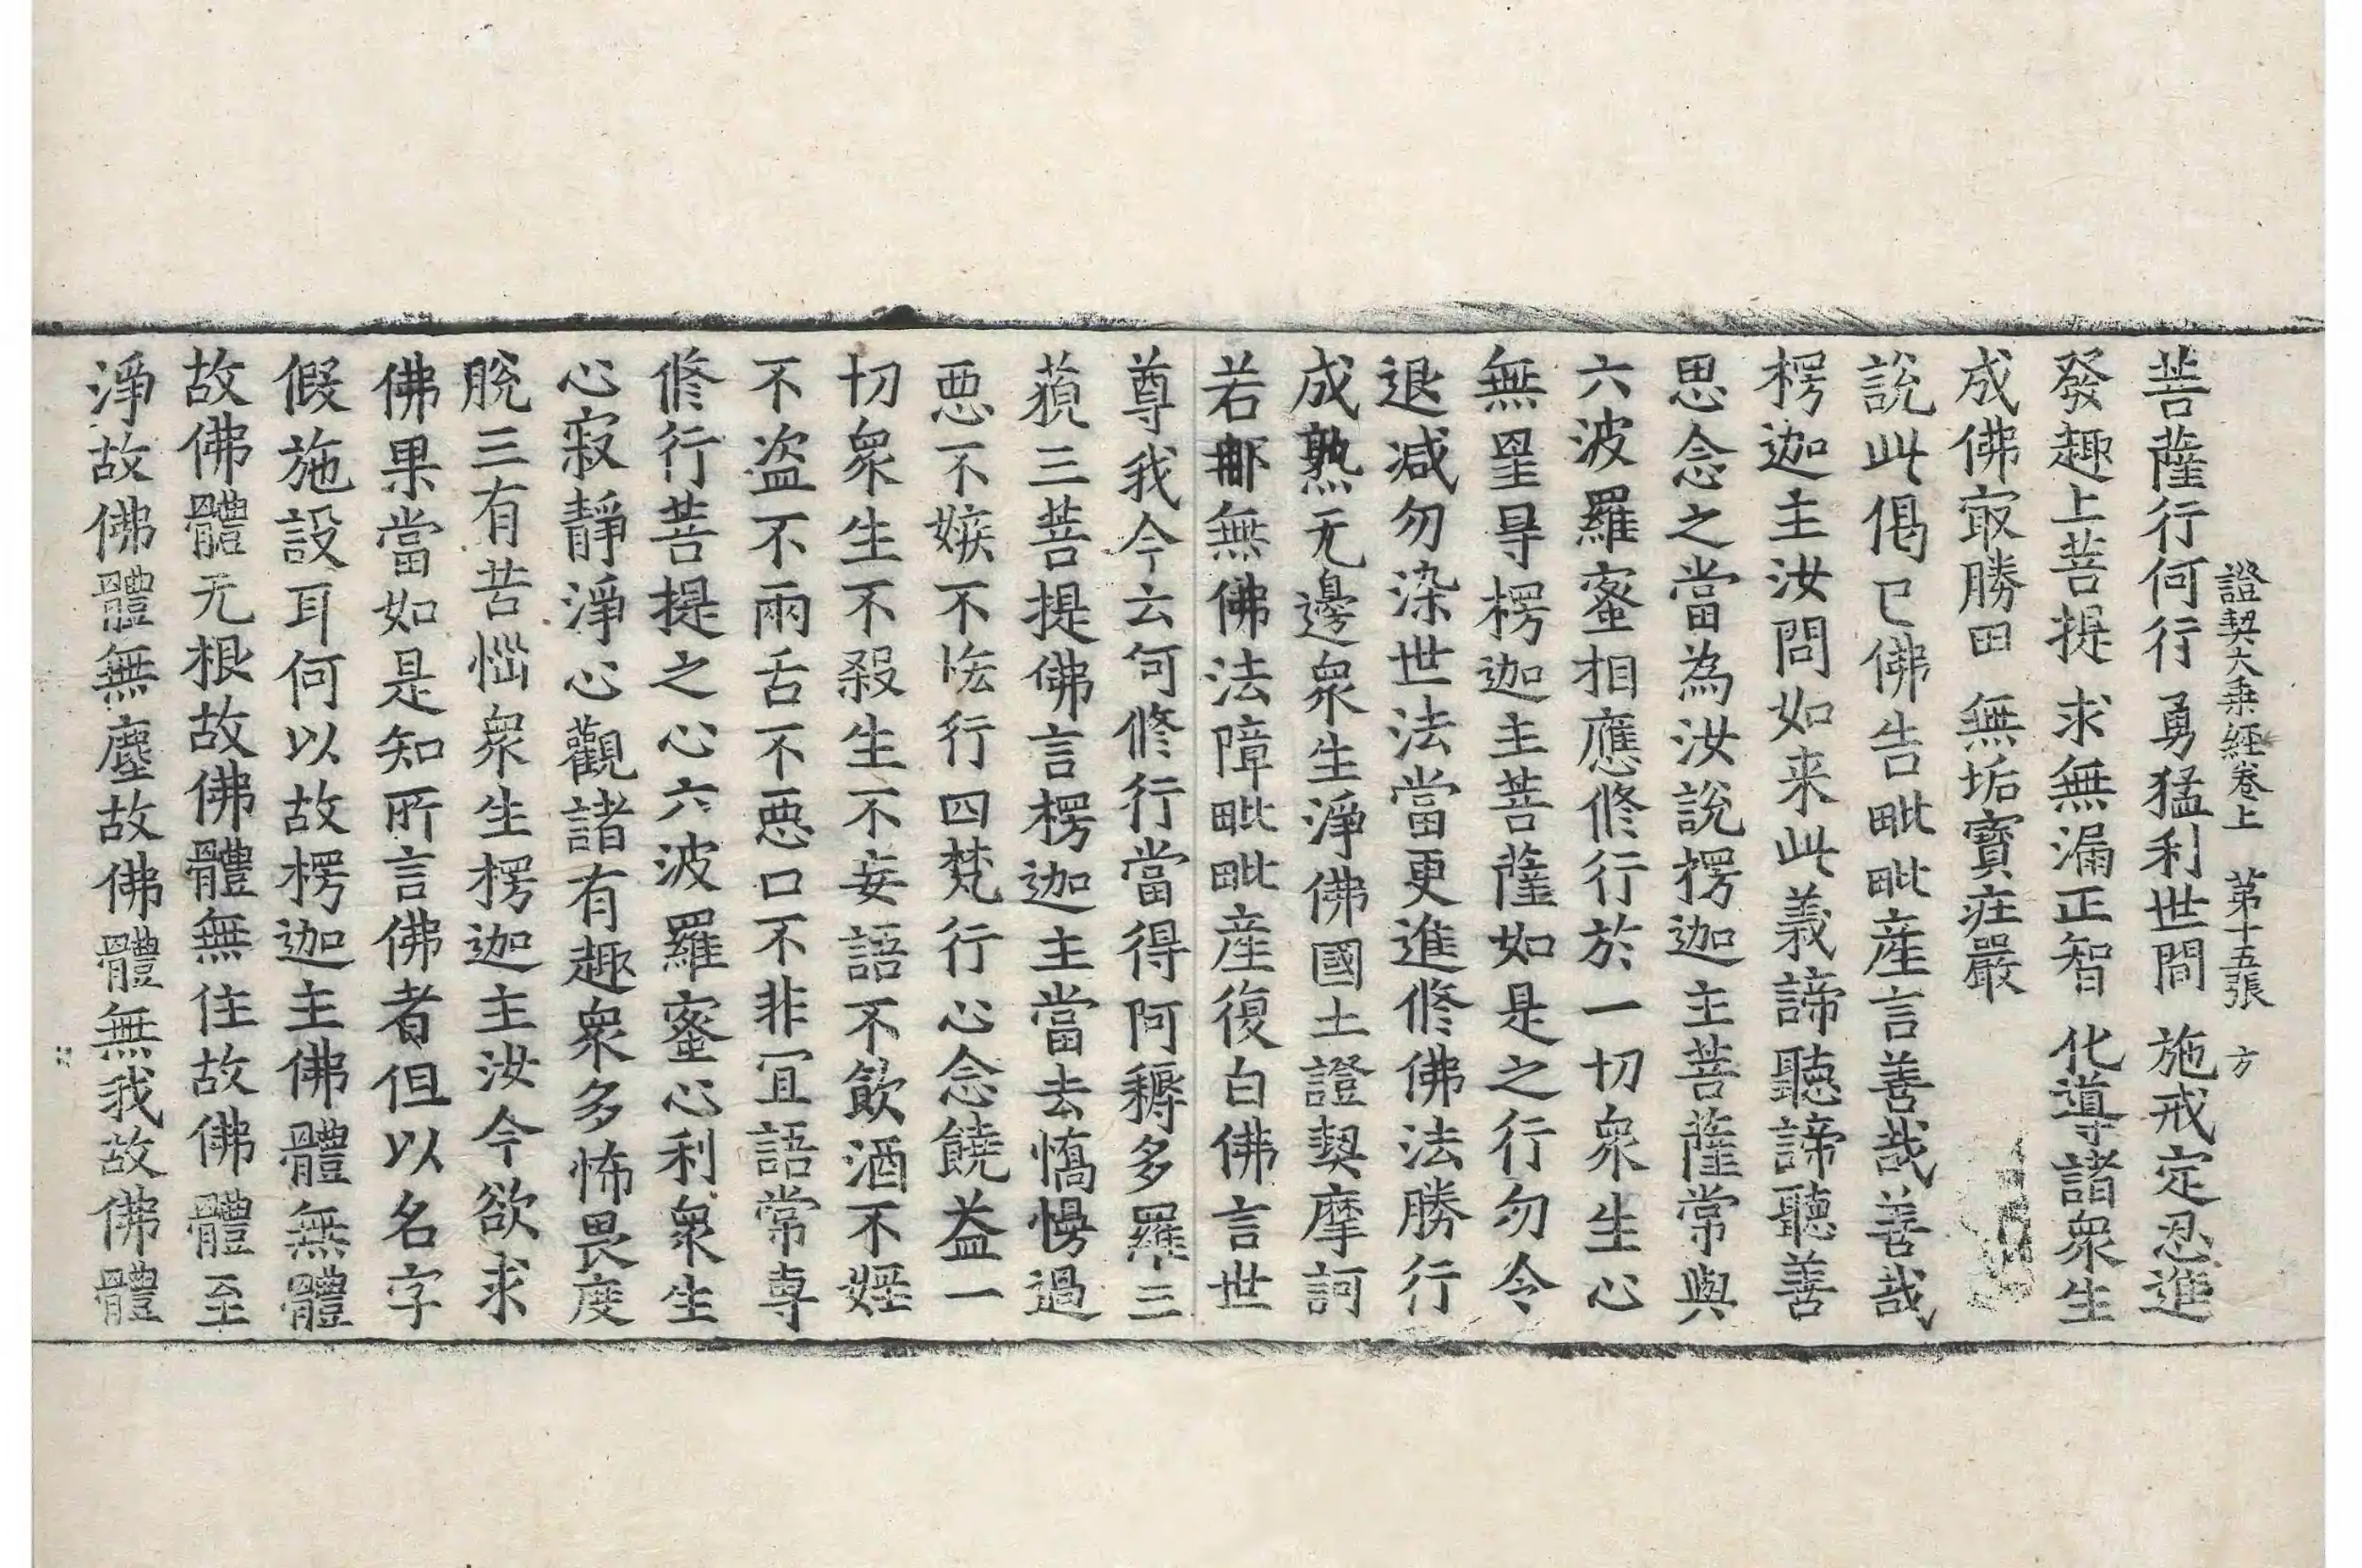 證契大乗経卷上　第十五張　方
菩薩行何行　勇猛利世間　施戒定忍進
發趣上菩提　求無漏正智　化導諸衆生
成佛㝡勝田　無垢寶莊嚴
說此偈已佛告毗毗產言善哉善哉
楞迦主汝問如来此義諦聽諦聽善
思念之當為汝說楞迦主菩薩常與
六波羅蜜相應修行於一切衆生心
無罣㝵楞迦主菩薩如是之行勿令
退減勿染世法當更進修佛法勝行
成熟无邊衆生淨佛國土證契摩訶
若那無佛法障毗毗產復白佛言世
尊我今云何修行當得阿耨多羅三
藐三菩提佛言楞迦主當去憍慢過
惡不嫉不恡行四梵行心念饒益一
切衆生不殺生不妄語不飲酒不婬
不盜不兩舌不惡口不非冝語常專
修行菩提之心六波羅蜜心利衆生
心寂靜淨心觀諸有趣衆多怖畏度
脫三有苦惱衆生楞迦主汝今欲求
佛果當如是知所言佛者但以名字
假施設耳何以故楞迦主佛體無體
故佛體无根故佛體無住故佛體至
淨故佛體無塵故佛體無我故佛體